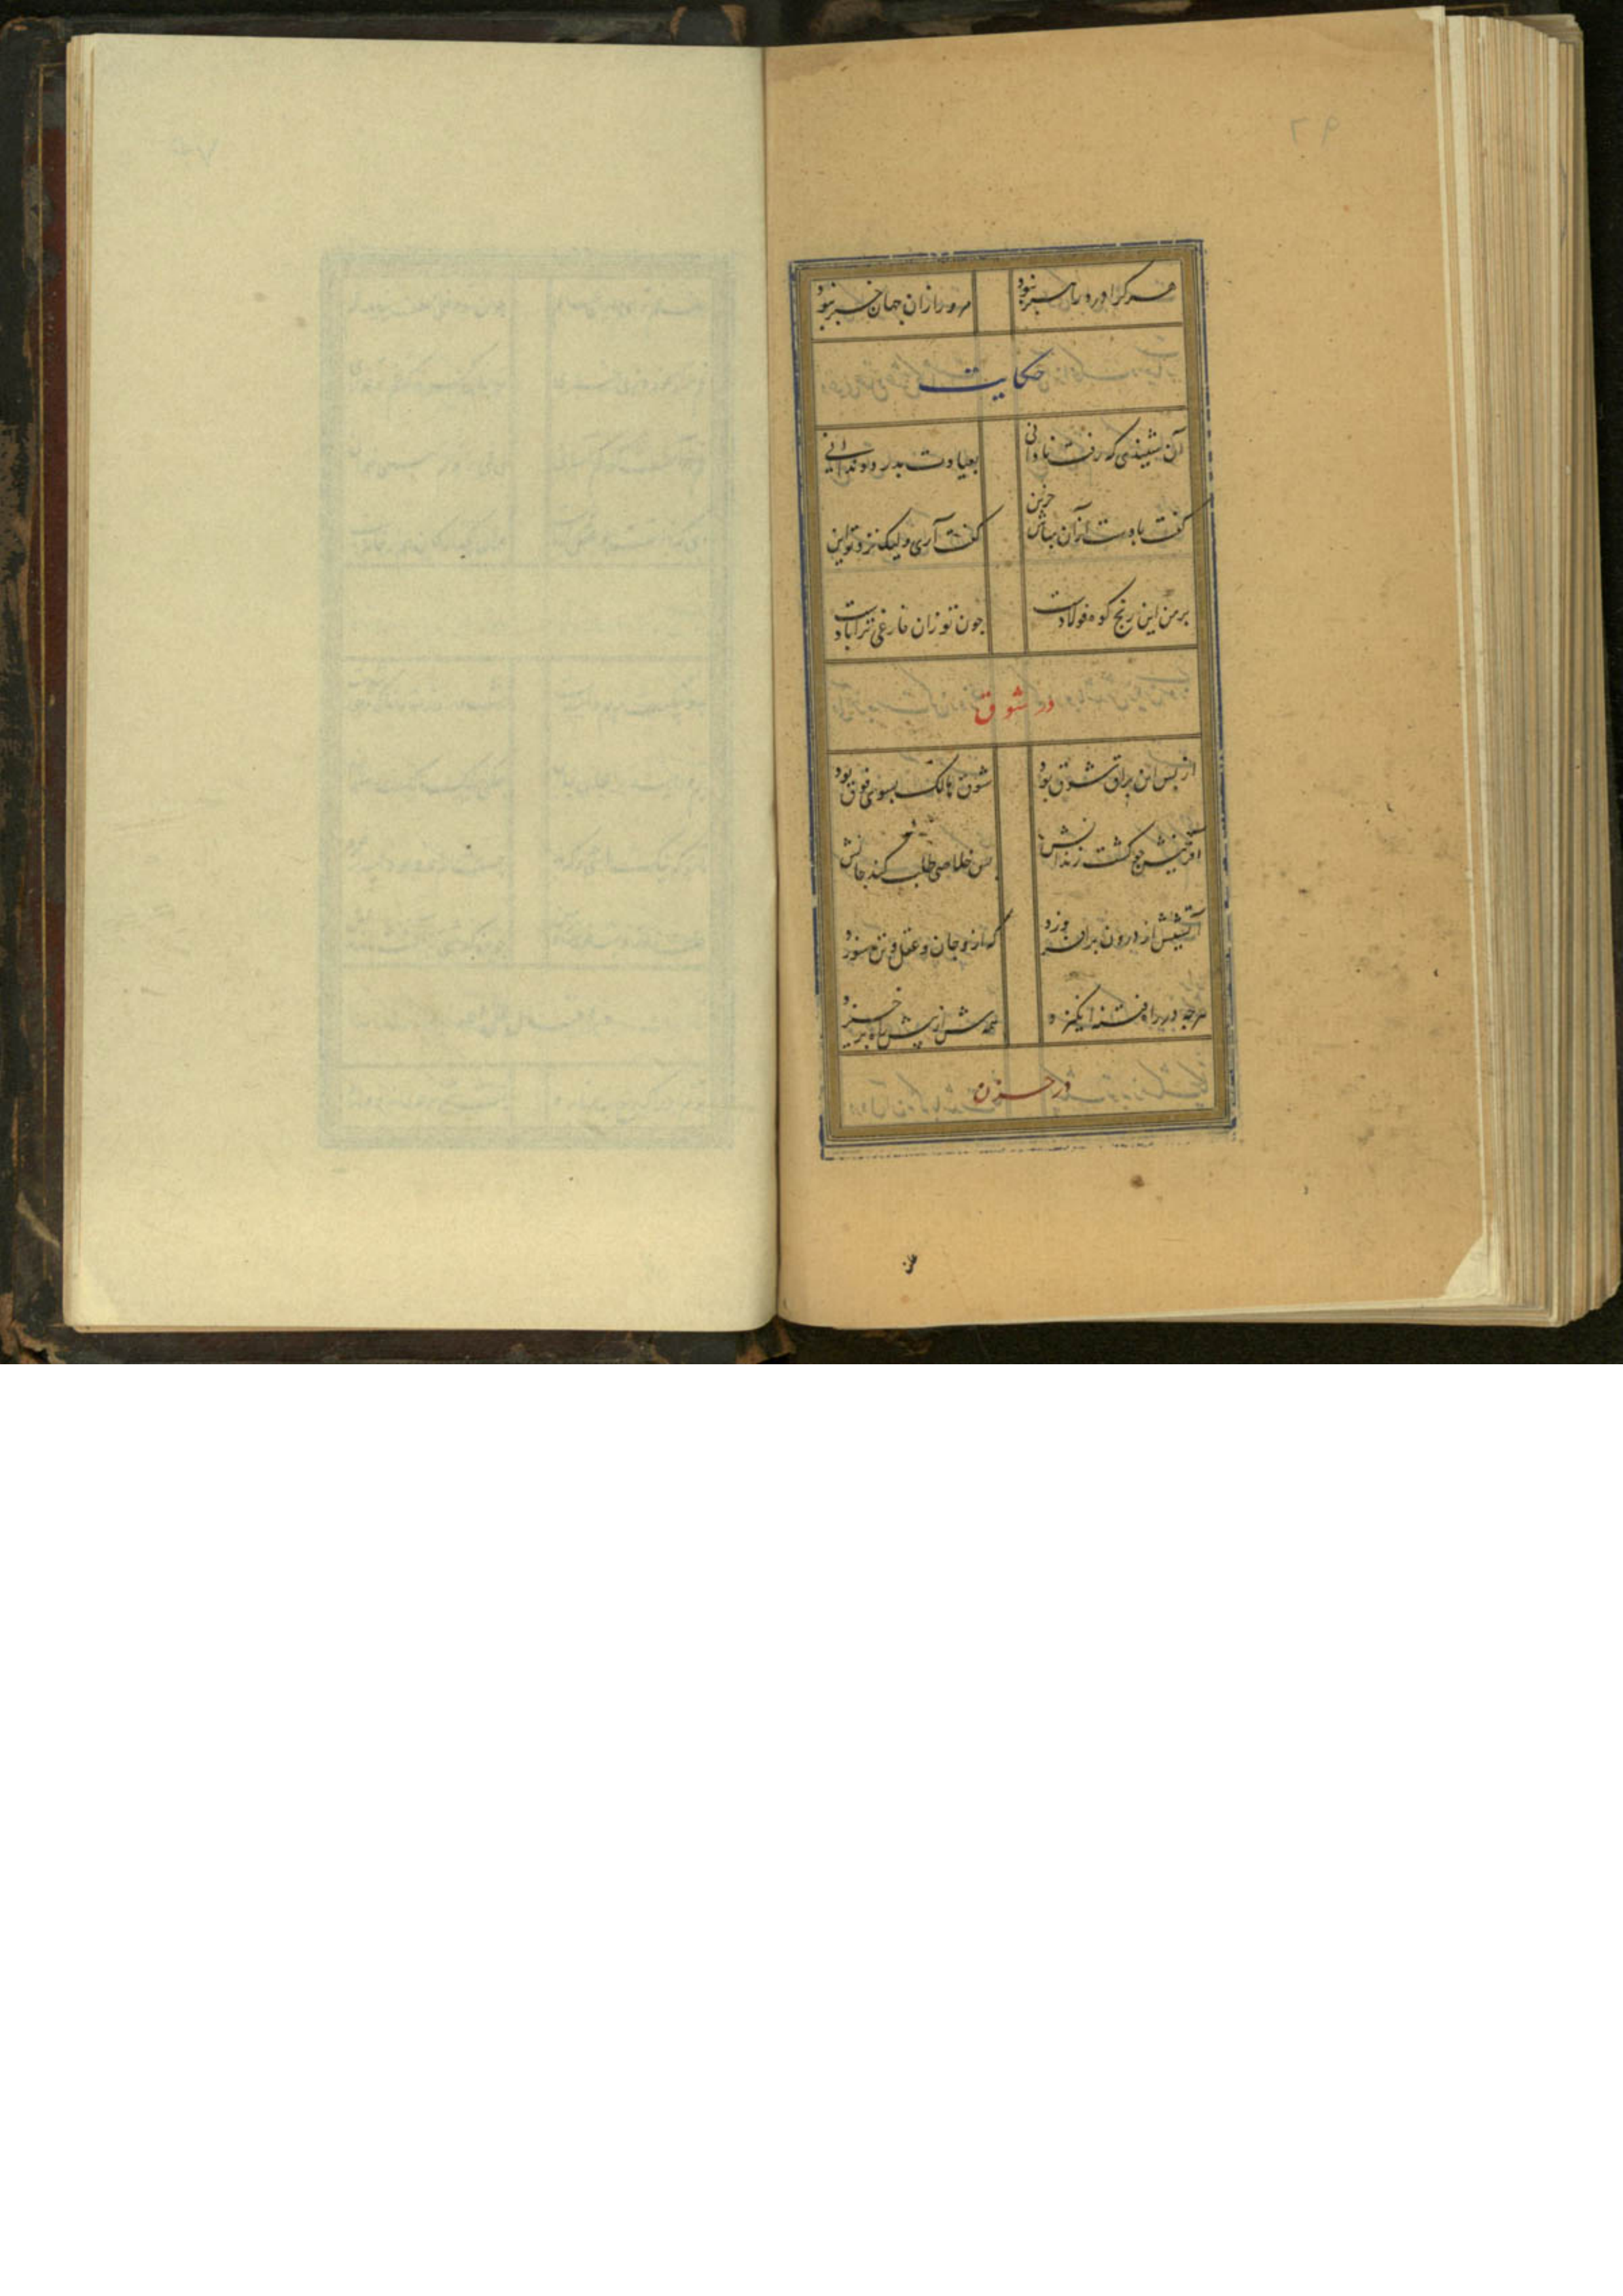 هر کرا درد راهبر نبود مرورا زان جهان خبر نبود
حکایت
آن شنیدی که رفت نادانی بعیادت بدرد دندانی
گفت بادست ازان مباش حزین گفت آری ولیک نزد تو این
بر من این رنج کوه فولادست چون تو زان فارغی ترا بادست
در شوق
از پس این براق شوق بود شوق هالک بسوی فوق بود
آفرینش چو گشت زندانش پس خلاصی طلب کند جانش
آتشش از درون برافروزد که ازو جان و عقل و تن سوزد
هرچه در راه فتنه انگیزد از پیش راه برخیزد
در حزن